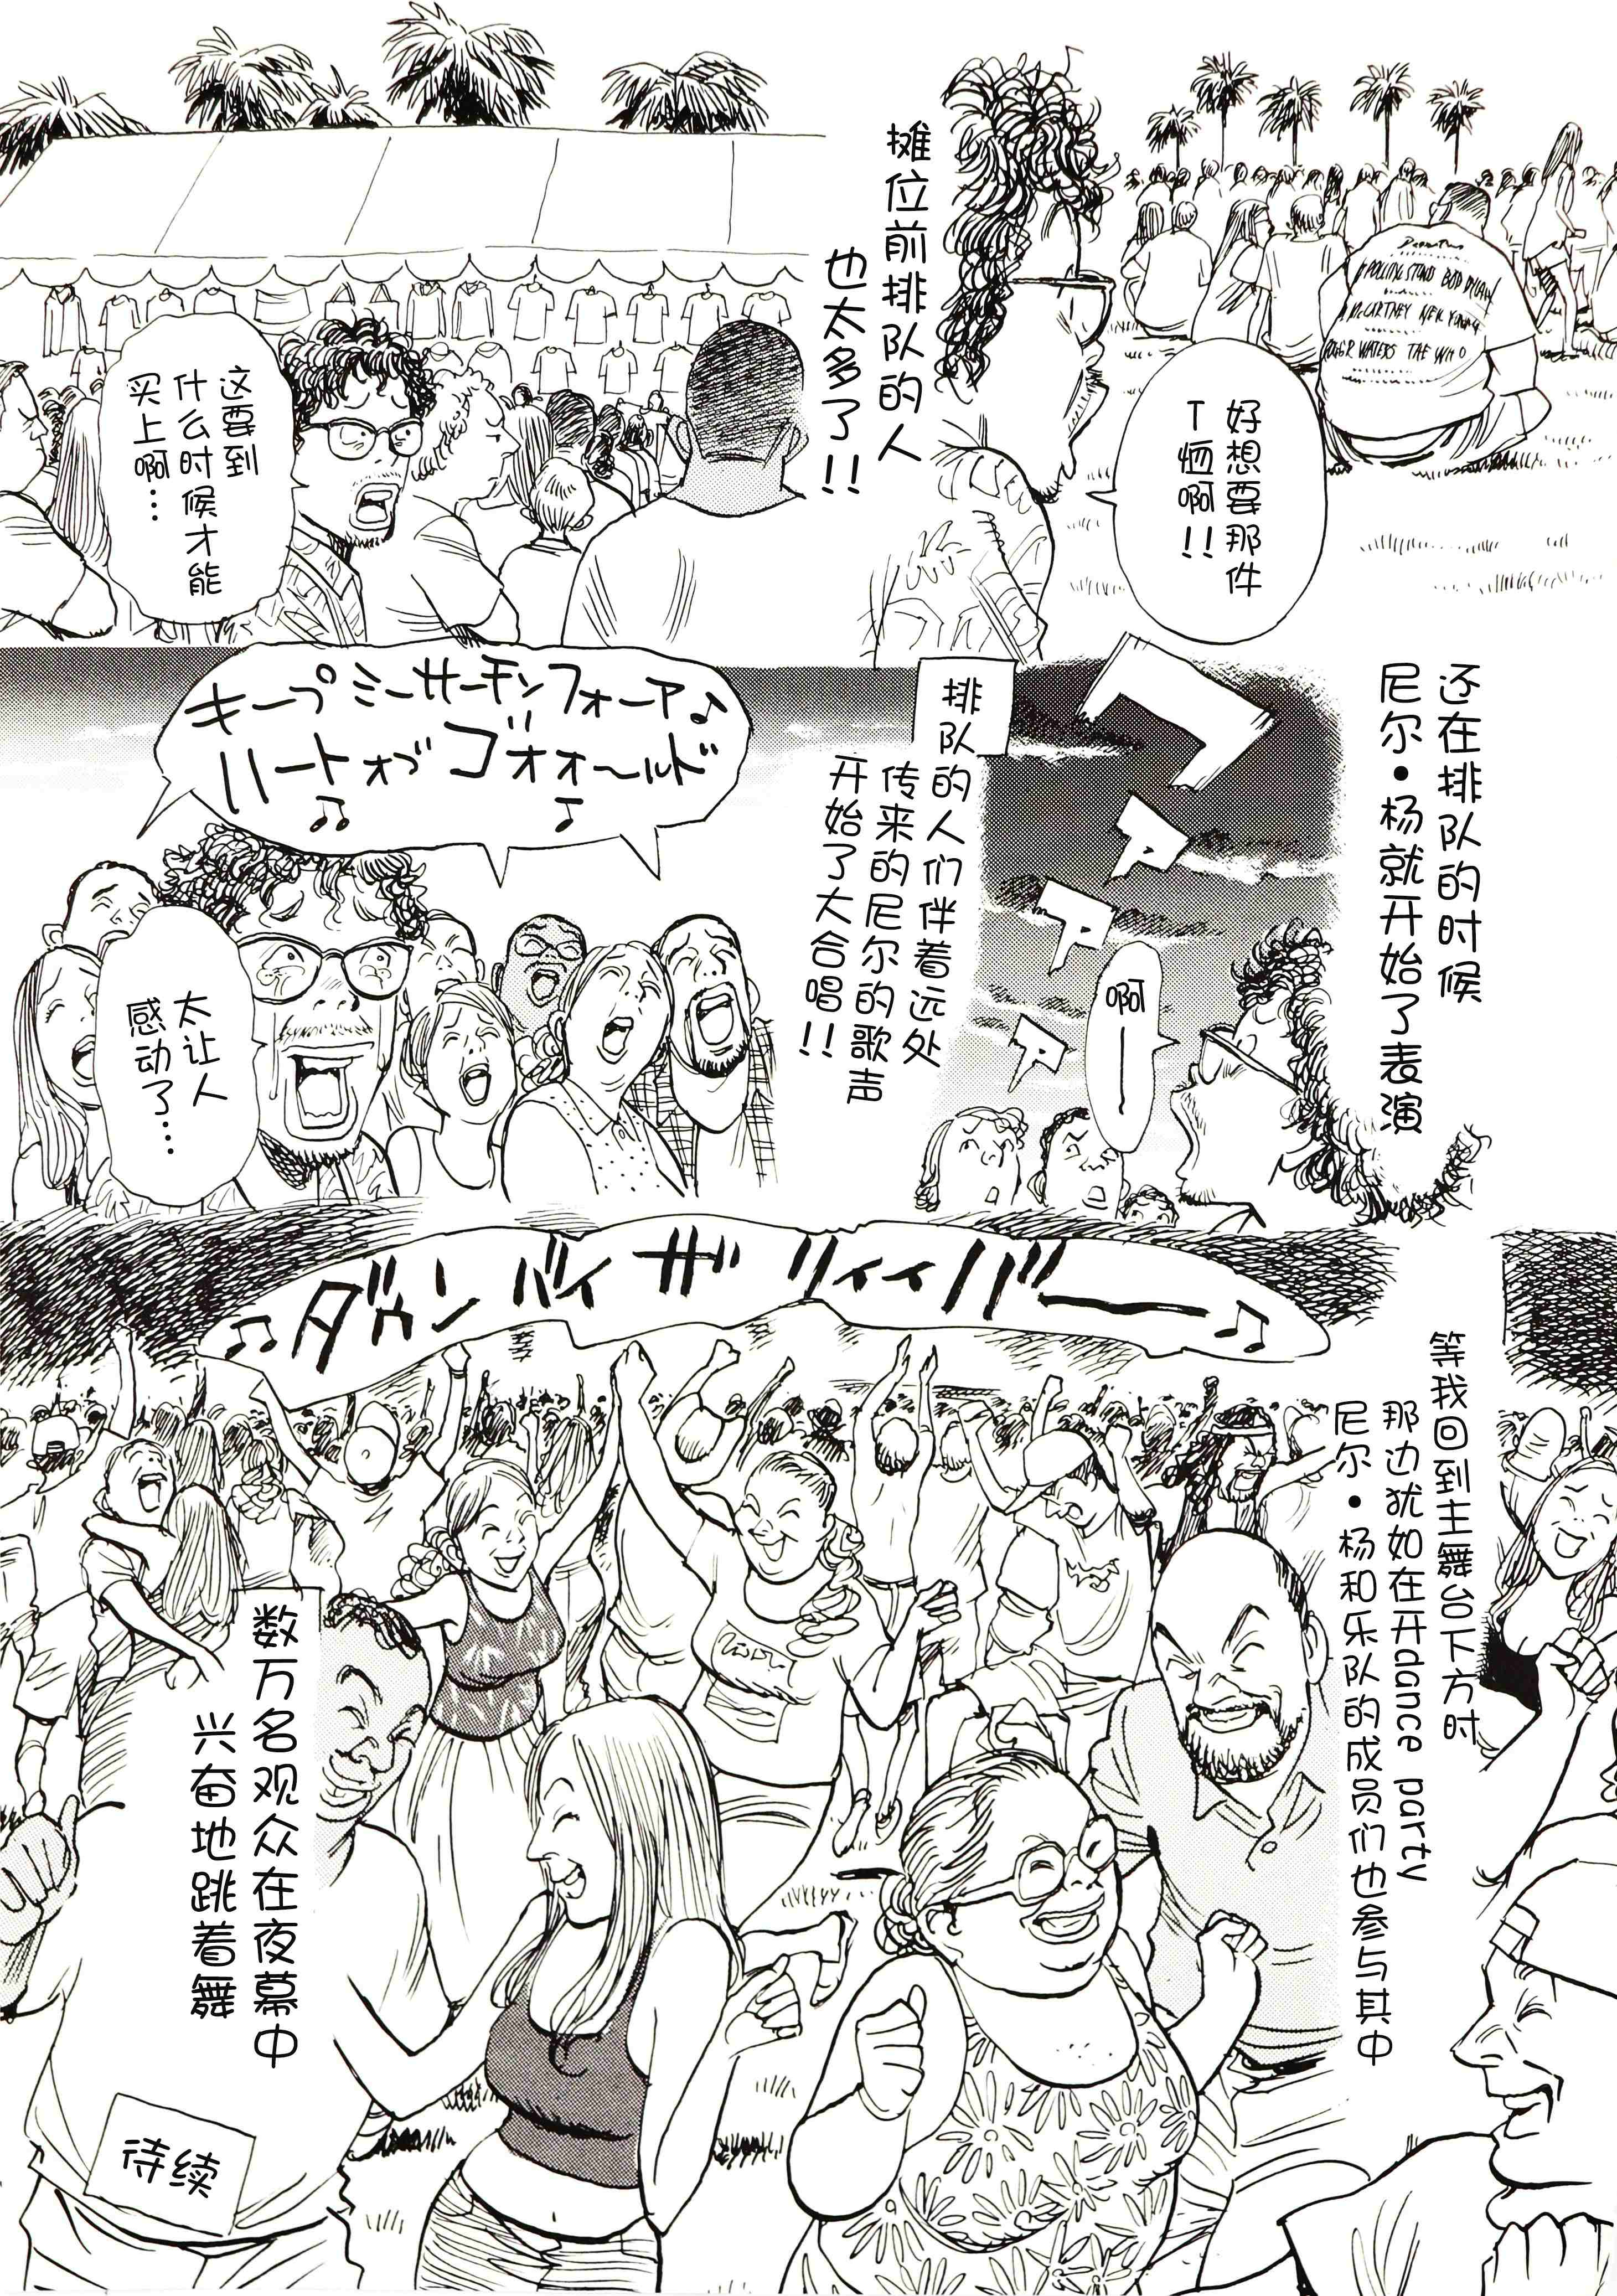 好想要那件
T恤啊!!
ROLLING STONES BOB DYLAN
McCARTNEY NEIL YOUNG
ROGER WATERS THE WHO
摊位前排队的人
也太多了!!
这要到
什么时候才能
买上啊…
还在排队的时候
尼尔·杨就开始了表演
ワァァァ
啊——
排队的人们伴着远处
传来的尼尔的歌声
开始了大合唱!!
キープミーサーチンフォーア♪
ハートオブゴォォ〜ルド
♫ ♪
太让人
感动了…
♫ダウンバイザリィィバー♫
等我回到主舞台下方时
那边犹如在开dance party
尼尔·杨和乐队的成员们也参与其中
数万名观众在夜幕中
兴奋地跳着舞
待续